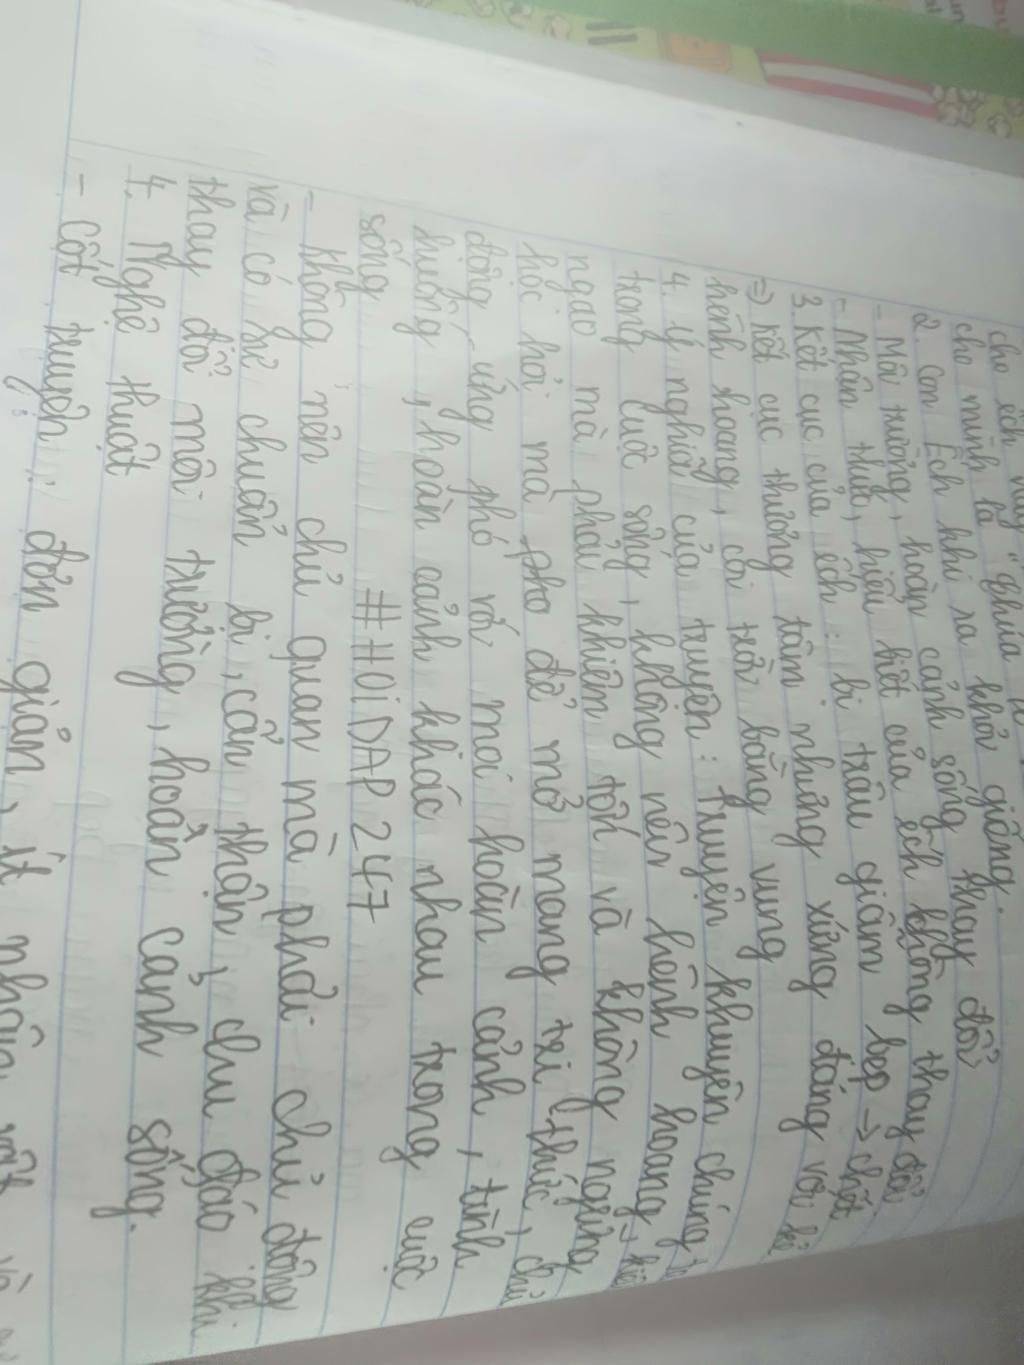 cho ếch
cho mình là "chúa
2. Con Ếch khi ra khỏi giếng.
- Môi trường, hoàn cảnh sống thay đổi
- Nhận thức, hiểu biết của ếch không thay đổi
3. Kết cục của ếch: bị trâu giẫm bẹp → chết
=> Kết cục thương tâm nhưng xứng đáng với kẻ
hênh hoang, coi trời bằng vung
4. Ý nghĩa của truyện: truyện khuyên chúng
trong cuộc sống, không nên hênh hoang,
ngạo mà phải khiêm tốn và không ngừng
học hỏi mà pho để mở mang tri thức, chủ
động ứng phó với mọi hoàn cảnh, tình
huống, hoàn cảnh khác nhau trong cuộc
sống
#HOiDAP247
- không nên chủ quan mà phải chủ động
và có sự chuẩn bị, cẩn thận, chu đáo khi
thay đổi môi trường, hoàn cảnh sống.
4. Nghệ thuật
- Cốt truyện: đơn giản, ít nhân vật